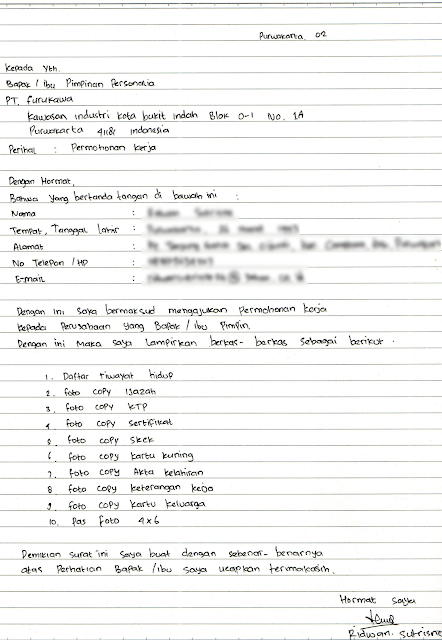 Purwakarta, 02
Kepada Yth.
Bapak / Ibu Pimpinan Personalia
PT. Furukawa
Kawasan industri kota bukit indah Blok D-1 No. 1A
Purwakarta 41181 Indonesia
Perihal : Permohonan kerja
Dengan Hormat,
Bahwa yang bertanda tangan di bawah ini :
Nama :
Tempat, Tanggal Lahir :
Alamat :
No Telepon / HP :
E-mail :
Dengan ini saya bermaksud mengajukan Permohonan kerja
kepada Perusahaan yang Bapak / Ibu Pimpin.
Dengan ini Maka saya Lampirkan berkas - berkas sebagai berikut .
1. Daftar riwayat hidup
2. foto copy Ijazah
3. foto copy KTP
4 foto copy sertifikat
5. foto copy skck
6. foto copy kartu kuning
7. foto copy Akta kelahiran
8 foto copy keterangan kerja
9. foto copy kartu keluarga
10. Pas foto 4x6
Demikian surat ini saya buat dengan sebenar-benarnya
atas Perhatian Bapak / ibu saya ucapkan terimakasih.
Hormat saya
Ridwan. Sutrisno